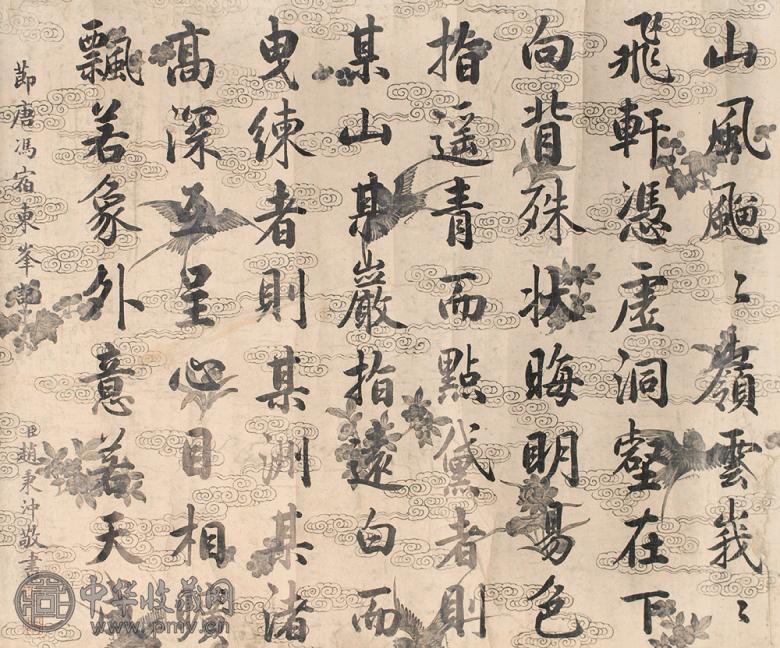 山風〻嶺雲峩〻
飛軒憑虛洞壑在下
向背殊狀晦明昜色
指遥青而點黛者則
某山某巖指遠白而
曳練者則某渊某渚
髙深互呈心目相
飄若象外意若天
莭唐馮宿東峯
臣趙秉沖敬書
中华收藏网
www.pmv.cn